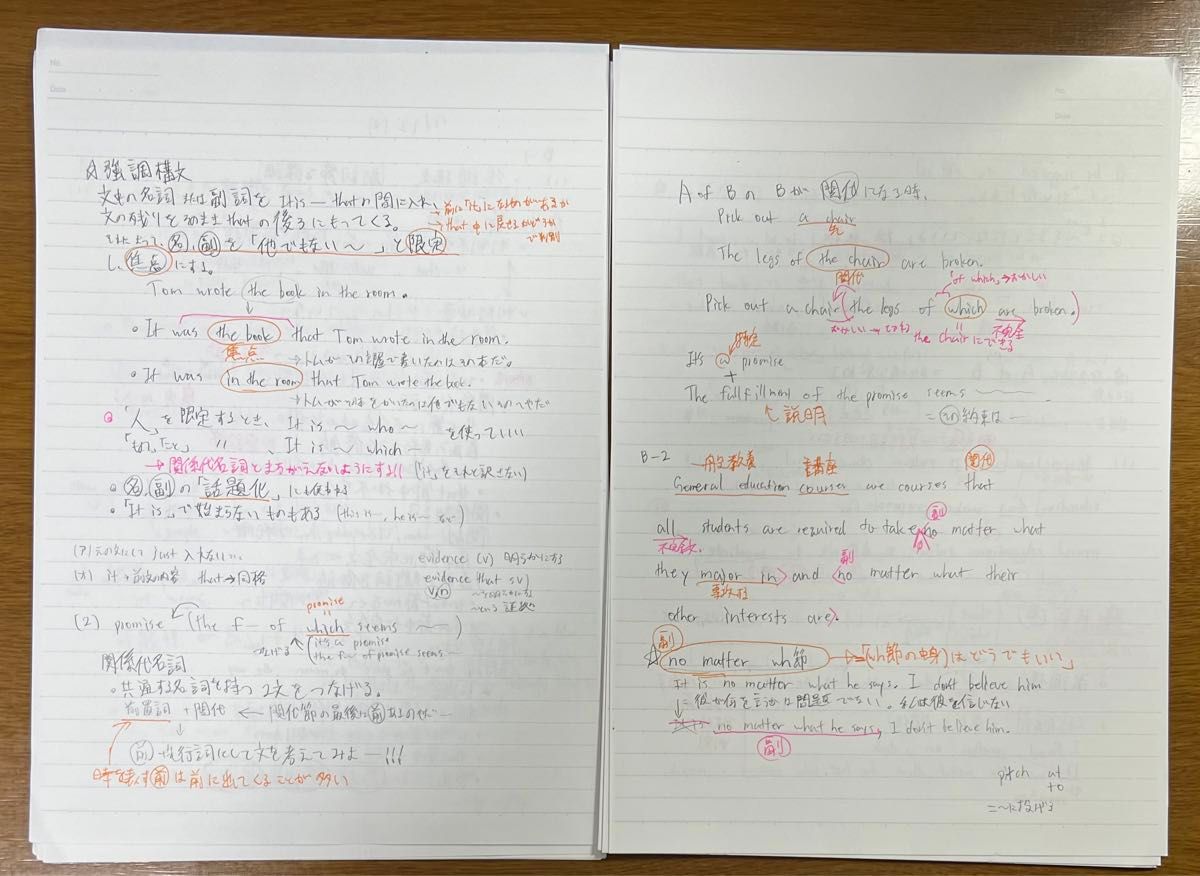 No.
Date
☆強調構文
文中の名詞または副詞を It is ― that の間に入れ、
文の残りをそのまま that の後ろにもってくる。
→前に「it」になるものがあるか
→that 中に戻せるかどうか
で判別
それによって、名、副を「他でもない〜」と限定
し、焦点にする。
Tom wrote the book in the room.
↓
・It was the book that Tom wrote in the room.
焦点 →トムがその部屋で書いたのはその本だ。
・It was in the room that Tom wrote the book.
「人」を限定するとき、It is 〜 who 〜 を使っていい
「もの」「こと」 〃 、It is 〜 which ―
→関係代名詞とまちがえないようにする!! (「it」をそれと訳さない)
・名、副の「話題化」にも使われる
・「It is」で始まらないものもある (this is ―, he is ― など)
(ア) 元の文にして just 入れない
(オ) it→前文の内容 that→同格
evidence (v) 明らかにする
evidence that sv)
v/n
〜という証拠
promise
=
(2) promise (the f― of which seems 〜〜)
つなげる it's a promise
the fu― of promise seems―
関係代名詞
・共通する名詞を持つ2文をつなげる。
前置詞+関代 ← 関代節の最後に前あるのやだ―
↓
前→先行詞にして文を考えてみよー!!!
時を表す前は前に出てくることが多い
No.
Date
A of B の B が関代になる時、
Pick out a chair
先
The legs of the chair are broken.
関代
「of which」→おかしい
Pick out a chair (the legs of which are broken.)
=
the chair にできる
不完全
It's a promise
+
The fullfillment of the promise seems 〜〜〜
説明 =この約束は―
B-2 一般教養 講座 関代
General education courses are courses that
副
all students are required to take <no matter what
不完全. 副
they major in> and <no matter what their
専攻する
other interests are>.
副
☆no matter wh節 → =「(wh節の中身)はどうでもいい」
It is no matter what he says. I don't believe him
↓ =彼が何を言うかは問題でない。私は彼を信じない
It is no matter what he says, I don't believe him.
副
pitch at
to
=〜に投げる